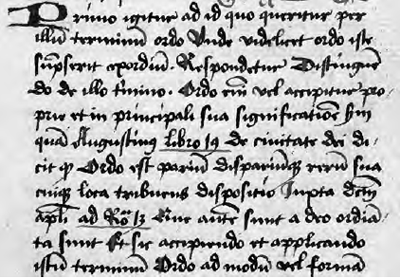 Primo igitur ad id quo queritur per
illũ terminũ ordo Unde videlicet ordo iste
sũpserit exordiũ. Respondetur Distinguen
do de illo tĩmino. Ordo em̃ vel accipitur pro-
prie et in principali sua significatiõe s̃m
quã Augustinus libro 19 de civitate dei di-
cit ꝙ Ordo est pariũ dispariũqꝫ rerũ sua
cuiqꝫ loca tribuens dispositio Iuxta dictũ
apl̃i ad Ro 13 Que autẽ sunt a deo ordia-
ta sunt Et sic accipiendo et applicando
istũ terminũ Ordo ad modũ vel formã